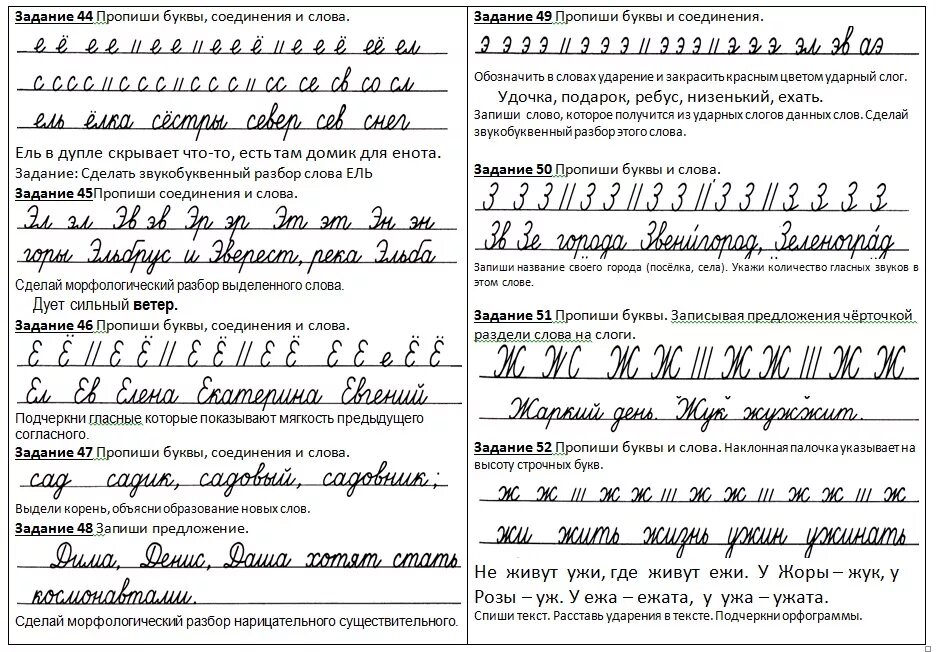 Задание 44 Пропиши буквы, соединения и слова.
е ё е е || е е || е е ё || е е ё её ел
с с с с || с с с || с с с || сс се св со сл
ель ёлка сёстры север сев снег
Ель в дупле скрывает что-то, есть там домик для енота.
Задание: Сделать звукобуквенный разбор слова ЕЛЬ
Задание 45Пропиши соединения и слова.
Эл эл Эв эв Эр эр Эт эт Эн эн
горы Эльбрус и Эверест, река Эльба
Сделай морфологический разбор выделенного слова.
Дует сильный ветер.
Задание 46 Пропиши буквы, соединения и слова.
Е Ё || Е Ё || Е Ё || Е Ё Е Е е Ё Ё
Ел Ев Елена Екатерина Евгений
Подчеркни гласные которые показывают мягкость предыдущего
согласного.
Задание 47 Пропиши буквы, соединения и слова.
сад садик, садовый, садовник;
Выдели корень, объясни образование новых слов.
Задание 48 Запиши предложение.
Дима, Денис, Даша хотят стать
космонавтами.
Сделай морфологический разбор нарицательного существительного.
Задание 49 Пропиши буквы и соединения.
э э э э || э э э || э э э || э э э эл эв аэ
Обозначить в словах ударение и закрасить красным цветом ударный слог.
Удочка, подарок, ребус, низенький, ехать.
Запиши слово, которое получится из ударных слогов данных слов. Сделай
звукобуквенный разбор этого слова.
Задание 50 Пропиши буквы и слова.
З З З || З З || З З || З З || З З З З
Зв Зе города Звени́город, Зеленогра́д
Запиши название своего города (посёлка, села). Укажи количество гласных звуков в
этом слове.
Задание 51 Пропиши буквы. Записывая предложения чёрточкой
раздели слова на слоги.
Ж Ж Ж Ж ||| Ж Ж ||| Ж Ж
Жаркий день. "Жук" жужжит.
Задание 52 Пропиши буквы и слова. Наклонная палочка указывает на
высоту строчных букв.
ж ж ||| ж ж ||| ж ж ||| ж ж ж ||| ж
жи жить жизнь ужин ужинать
Не живут ужи, где живут ежи. У Жоры – жук, у
Розы – уж. У ежа – ежата, у ужа – ужата.
Спиши текст. Расставь ударения в тексте. Подчеркни орфограммы.